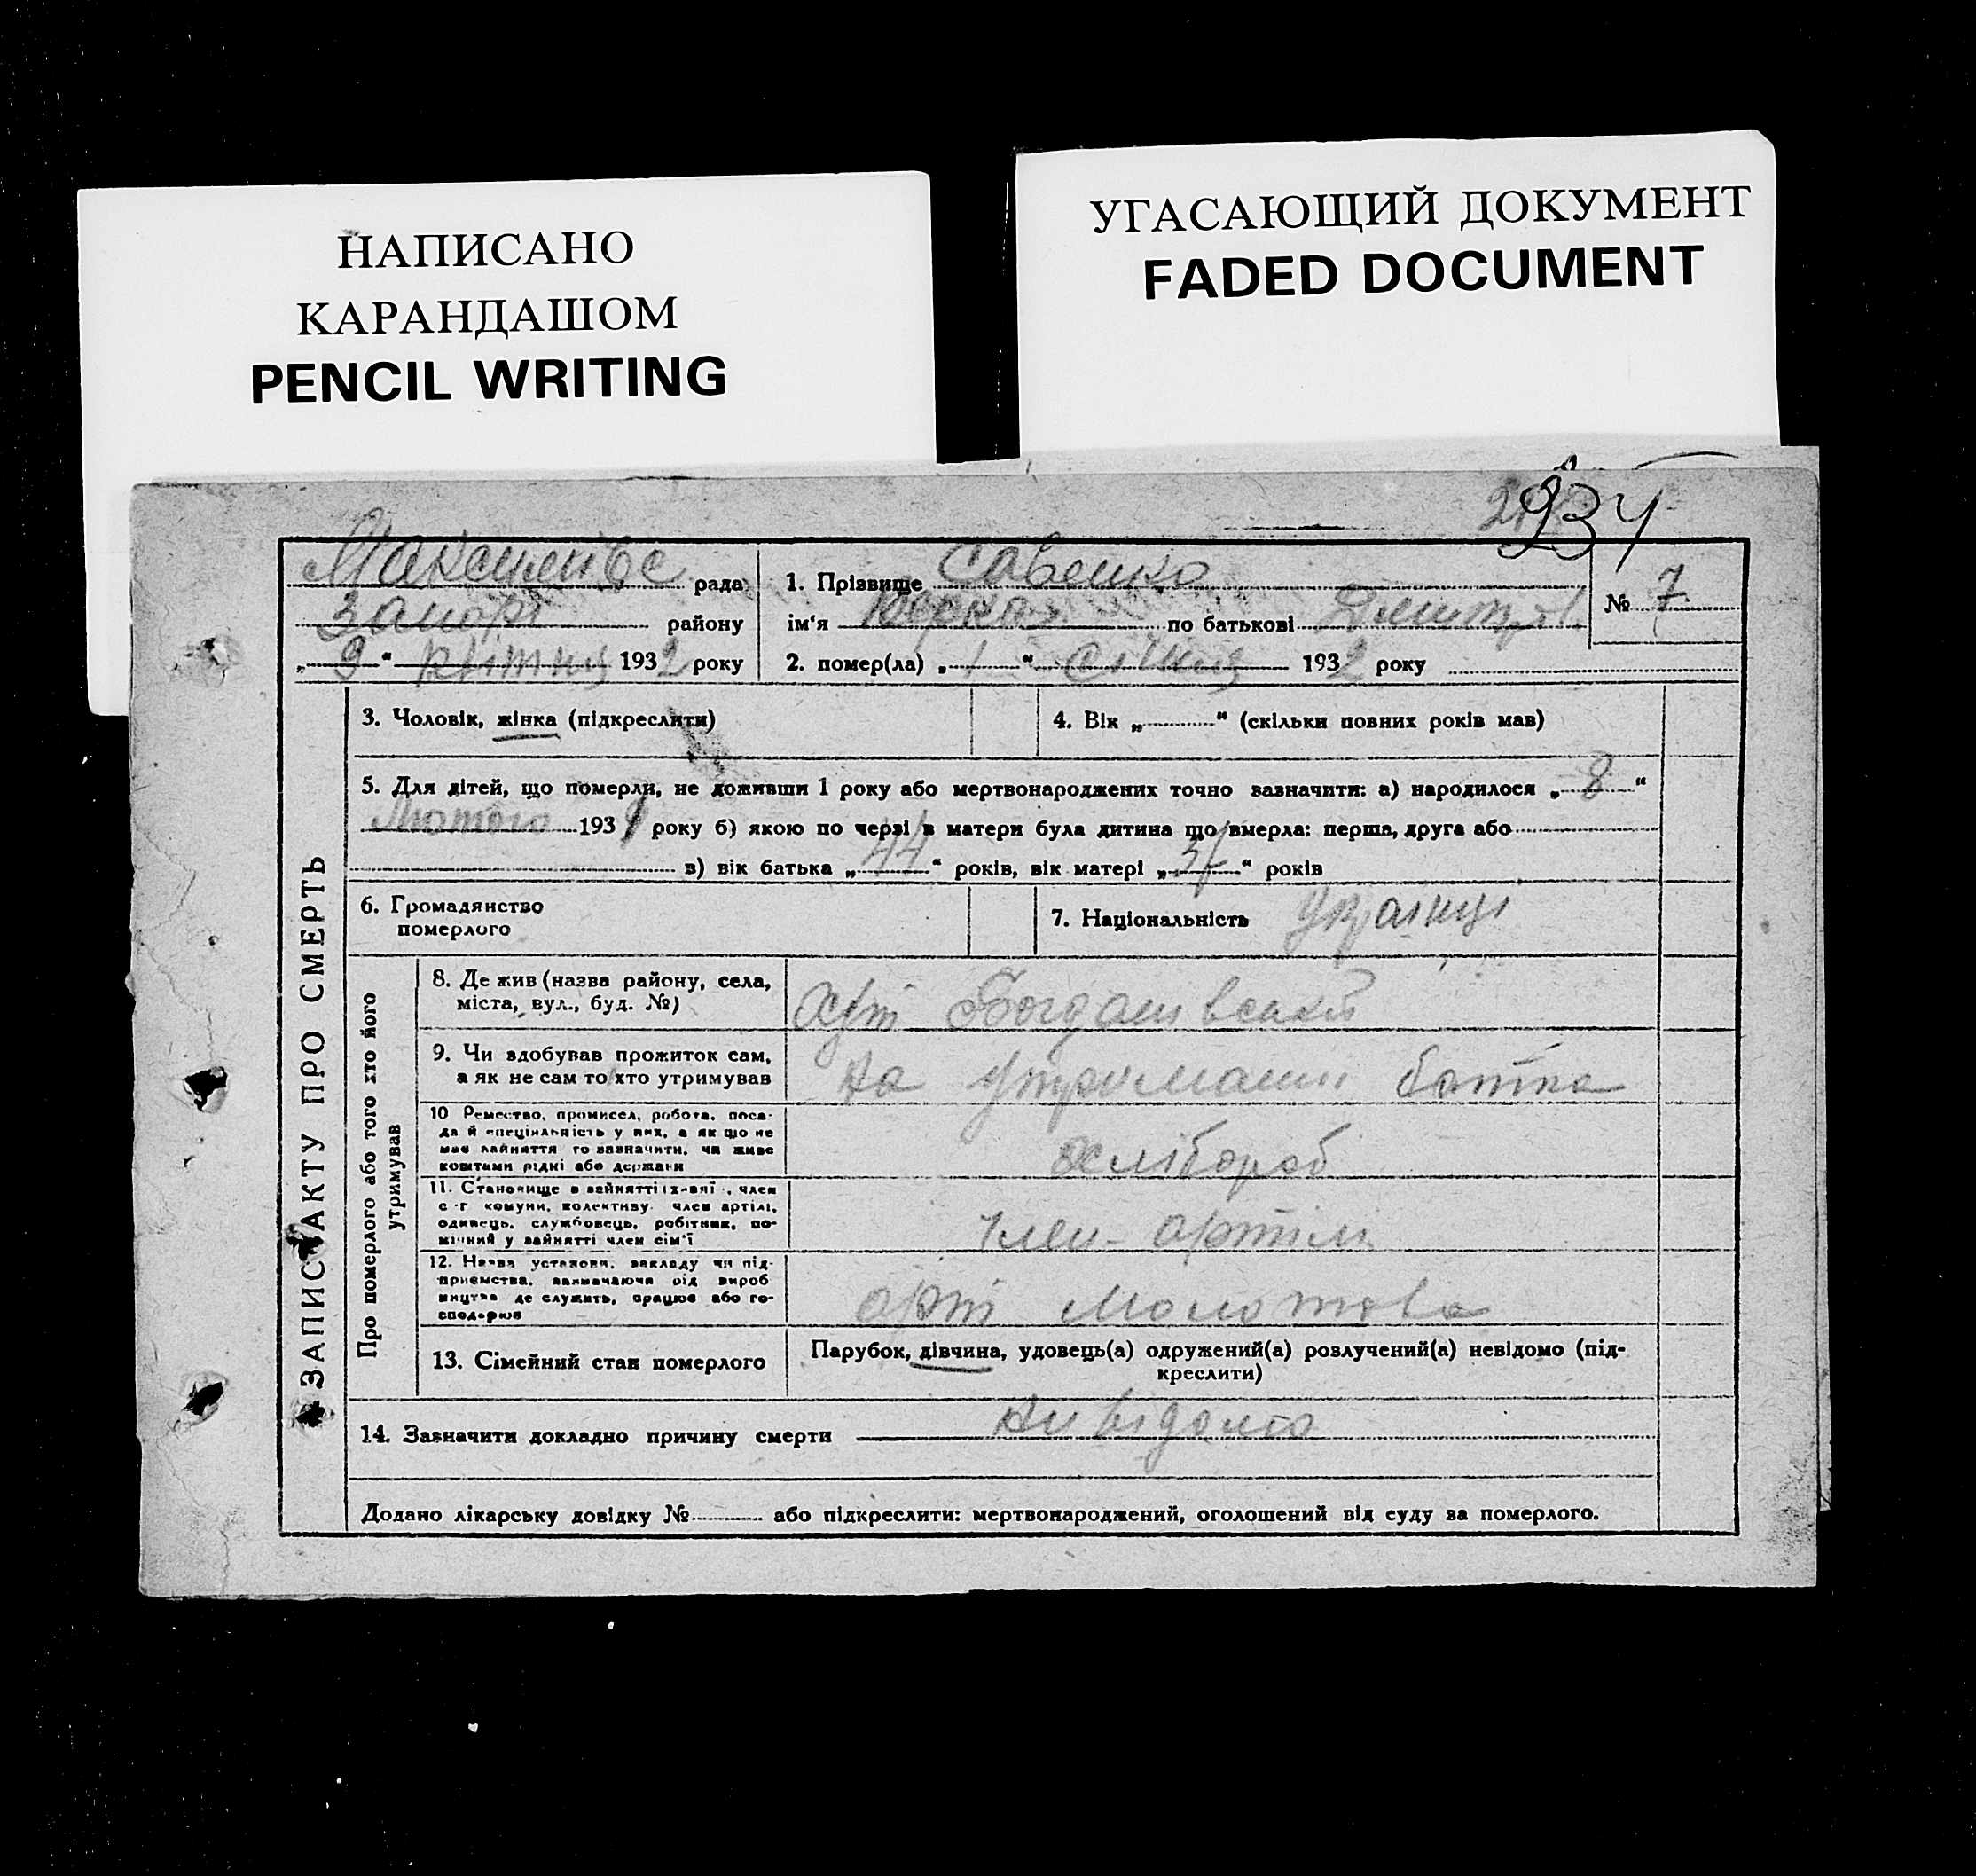 НАПИСАНО
КАРАНДАШОМ
PENCIL WRITING
УГАСАЮЩИЙ ДОКУМЕНТ
FADED DOCUMENT
234
рада
району
„9“ 1932 року
1. Прізвище Савенко
ім‘я по батькові
2. помер(ла) „1“ січня 1932 року
№ 7
3. Чоловік, жінка (підкреслити)
4. Вік „“ (скільки повних років мав)
5. Для дітей, що померли, не доживши 1 року або мертвонароджених точно зазначити: а) народилося „8“
Лютого 1931 року б) якою по черзі в матери була дитина що вмерла: перша, друга або
в) вік батька „44“ років, вік матері „“ років
6. Громадянство
померлого
7. Національність
ЗАПИС АКТУ ПРО СМЕРТЬ
Про померлого або того хто його
утримував
8. Де жив (назва району, села,
міста, вул., буд. №)
Хут Богданівський
9. Чи здобував прожиток сам,
а як не сам то хто утримував
на утриманні батька
10 Ремество, промисел, робота, поса-
да й спеціяльність у них, а як що не
має зайняття то зазначити, чи живе
коштами рідні або держави
хлібороб
11. Становище в зайнятті член
с-г комуни, колективу член артілі,
одинець, службовець, робітник, по-
мічний у зайнятті член сім'ї
член артілі
12. Назва установи, закладу чи під-
приємства, зазначаючи рід вироб
ництва де служить, працює або го-
сподарює
арт Молотова
13. Сімейний стан померлого
Парубок, дівчина, удовець(а) одружений(а) розлучений(а) невідомо (під-
креслити)
14. Зазначити докладно причину смерти невідомо
Додано лікарську довідку № або підкреслити: мертвонароджений, оголошений від суду за померлого.